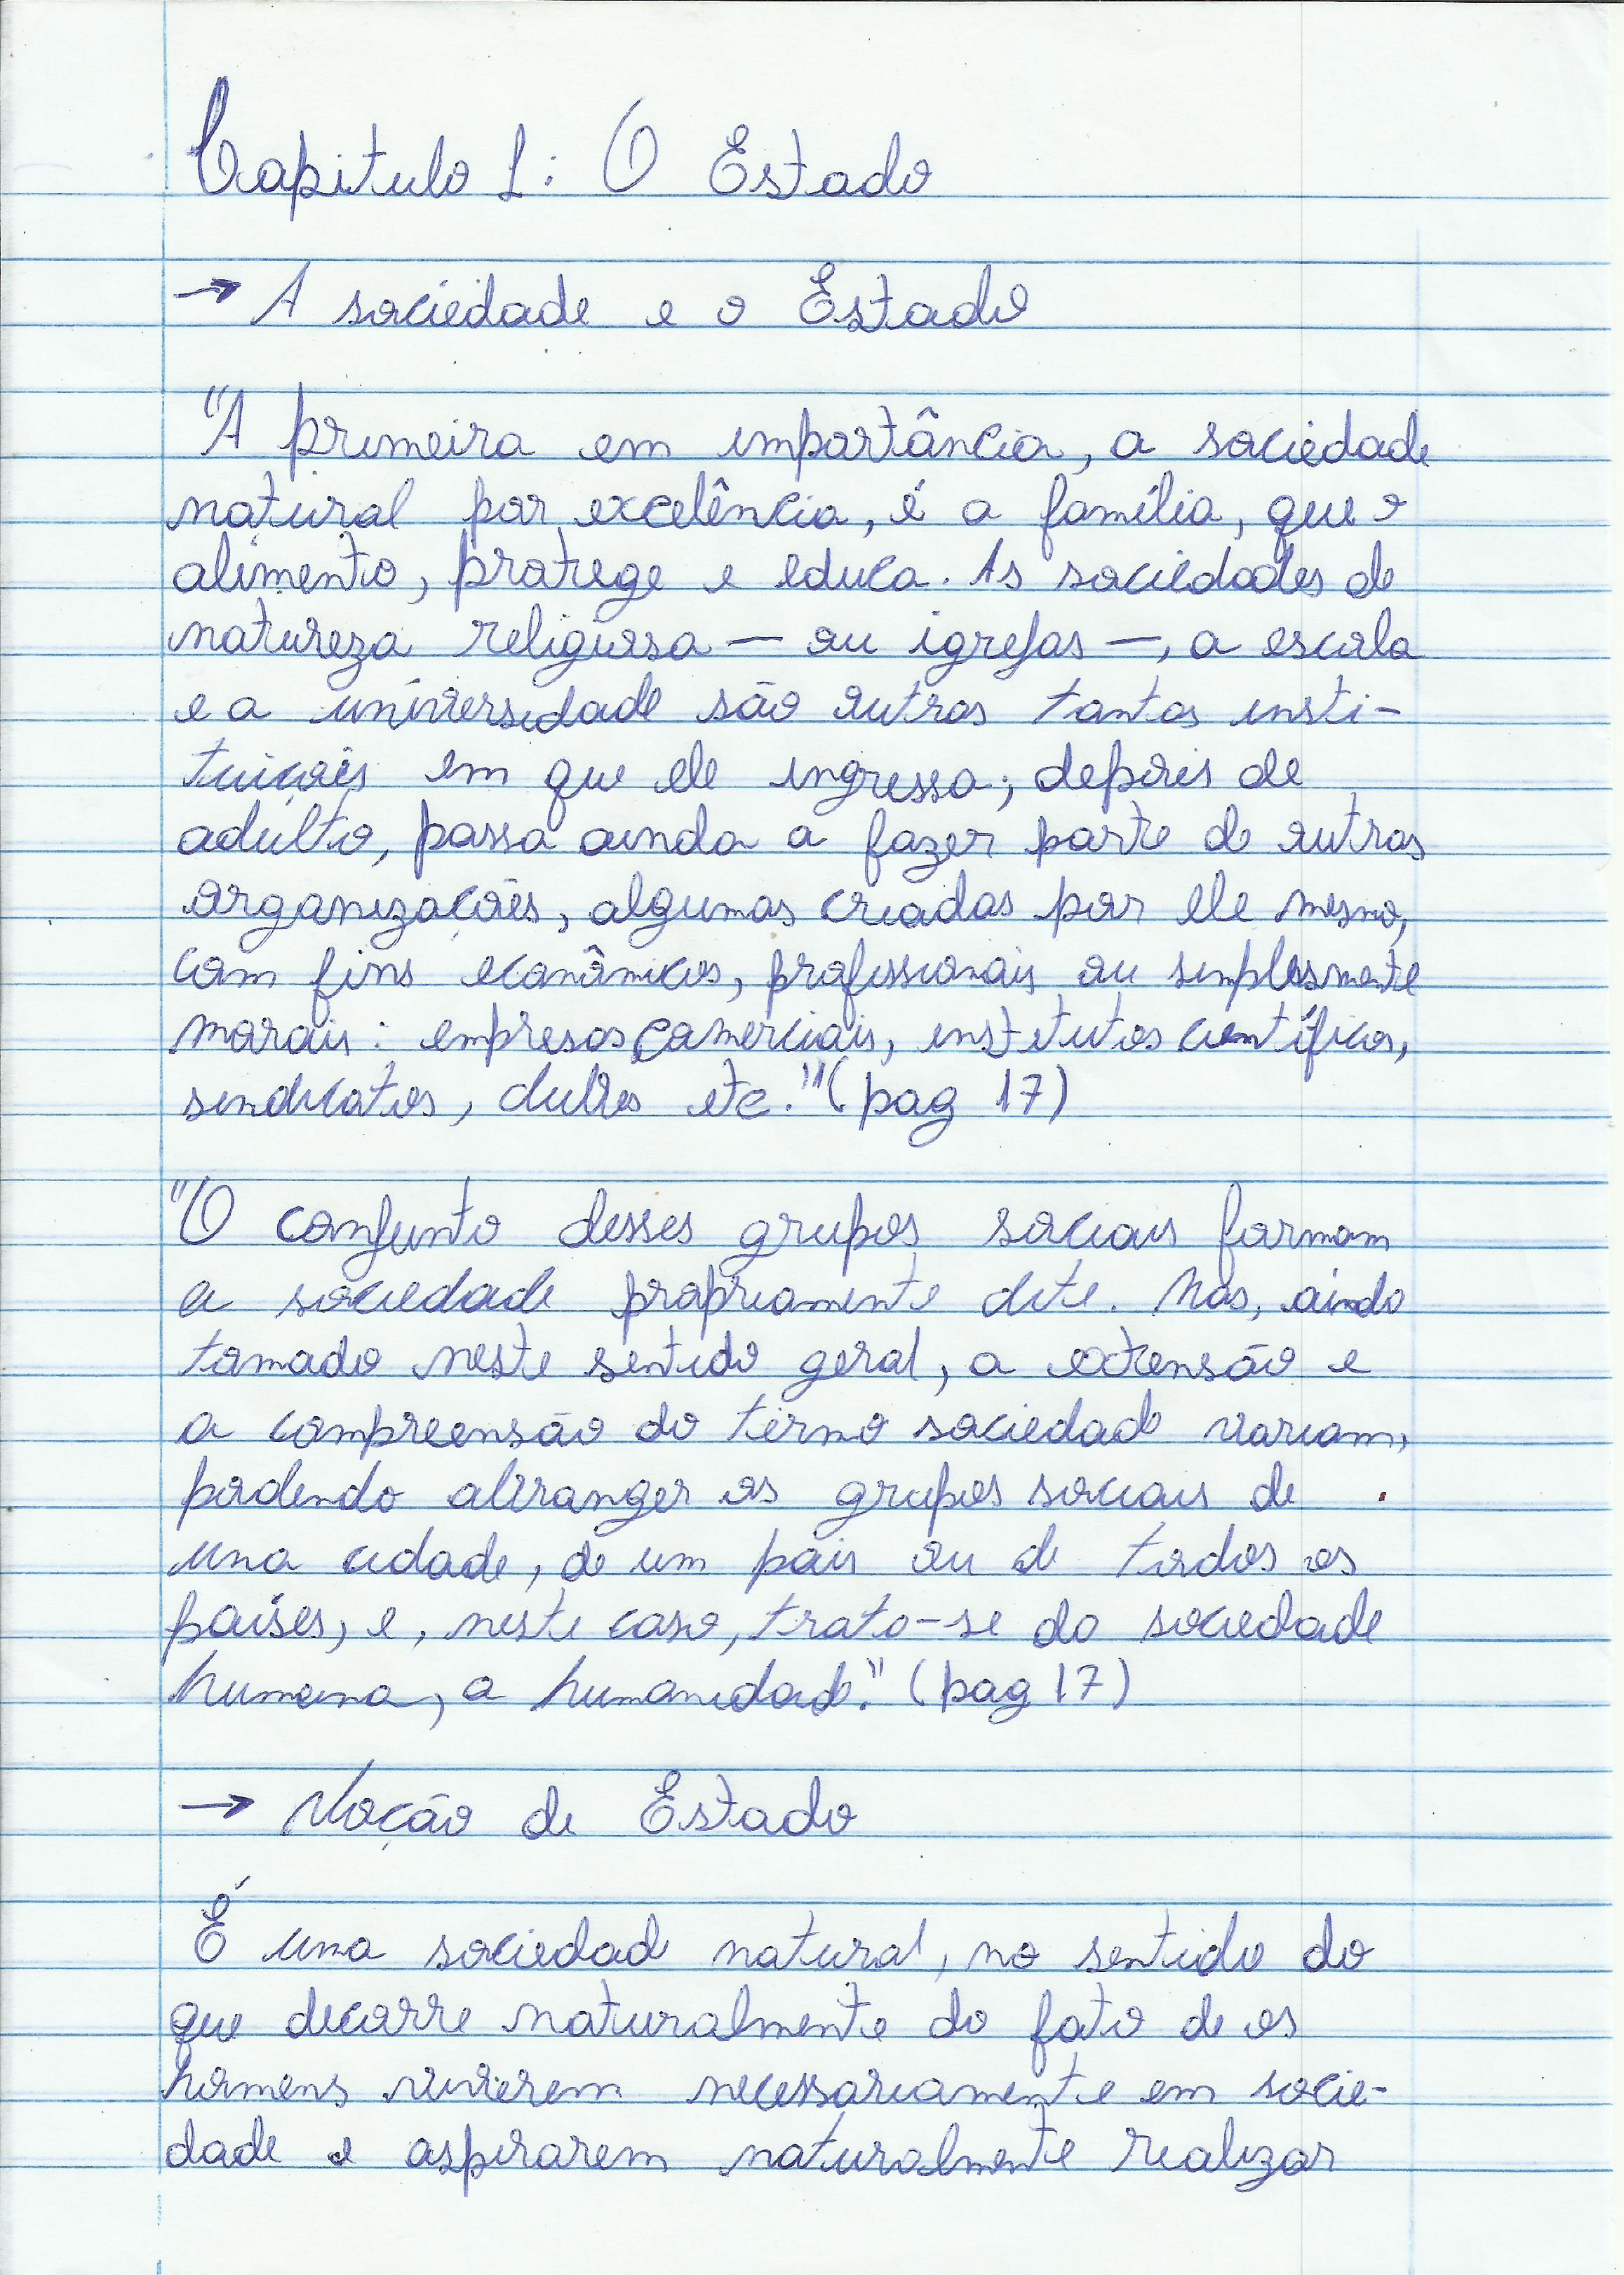 Capitulo 1: O Estado
→ A sociedade e o Estado
"A primeira em importância, a sociedade
natural por excelência, é a família, que o
alimenta, protege e educa. As sociedades de
natureza religiosa — ou igrejas —, a escola
e a universidade são outras tantas insti-
tuições em que ele ingressa; depois de
adulto, passa ainda a fazer parte de outras
organizações, algumas criadas por ele mesmo,
com fins econômicos, profissionais ou simplesmente
morais: empresas comerciais, institutos científicos,
sindicatos, clubes etc."" (pag 17)
"O conjunto desses grupos sociais formam
a sociedade propriamente dita. Mas, ainda
tomado neste sentido geral, a extensão e
a compreensão do termo sociedade variam,
podendo abranger os grupos sociais de
uma cidade, de um pais ou de todos os
países, e, neste caso, trata-se da sociedade
humana, a humanidade." (pag 17)
→ Noção de Estado
É uma sociedade natural, no sentido do
que decorre naturalmente do fato de os
homens viverem necessariamente em socie-
dade e aspirarem naturalmente realizar